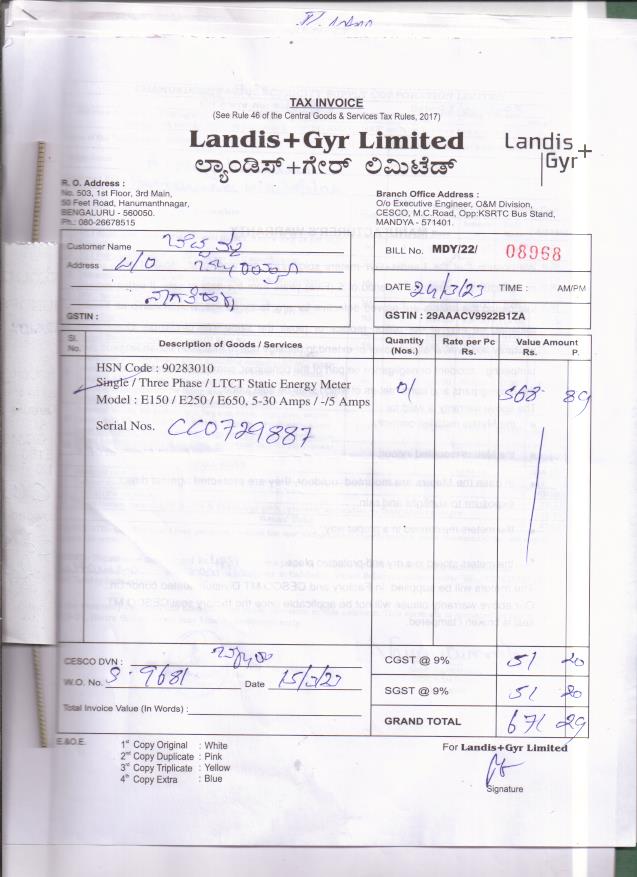 TAX INVOICE
(See Rule 46 of the Central Goods & Services Tax Rules, 2017)
Landis+Gyr Limited
ಲ್ಯಾಂಡಿಸ್+ಗೇರ್ ಲಿಮಿಟೆಡ್
Landis+
Gyr
R. O. Address :
No. 503, 1st Floor, 3rd Main,
50 Feet Road, Hanumanthnagar,
BENGALURU - 560050.
Ph.: 080-26678515
Branch Office Address :
O/o Executive Engineer, O&M Division,
CESCO, M.C.Road, Opp:KSRTC Bus Stand,
MANDYA - 571401.
Customer Name
Address
GSTIN :
BILL No. MDY/22/ 08968
DATE 24/3/23 TIME : AM/PM
GSTIN : 29AAACV9922B1ZA
Sl. No. Description of Goods / Services Quantity (Nos.) Rate per Pc Rs. Value Amount Rs. P.
HSN Code : 90283010
Single / Three Phase / LTCT Static Energy Meter 01 568 89
Model : E150 / E250 / E650, 5-30 Amps / -/5 Amps
Serial Nos. CC0729887
CESCO DVN :
W.O. No. S-9681 Date 15/3/23
Total Invoice Value (In Words) :
CGST @ 9% 51 20
SGST @ 9% 51 20
GRAND TOTAL 671 29
E.&O.E.
1st Copy Original : White
2nd Copy Duplicate : Pink
3rd Copy Triplicate : Yellow
4th Copy Extra : Blue
For Landis+Gyr Limited
Signature